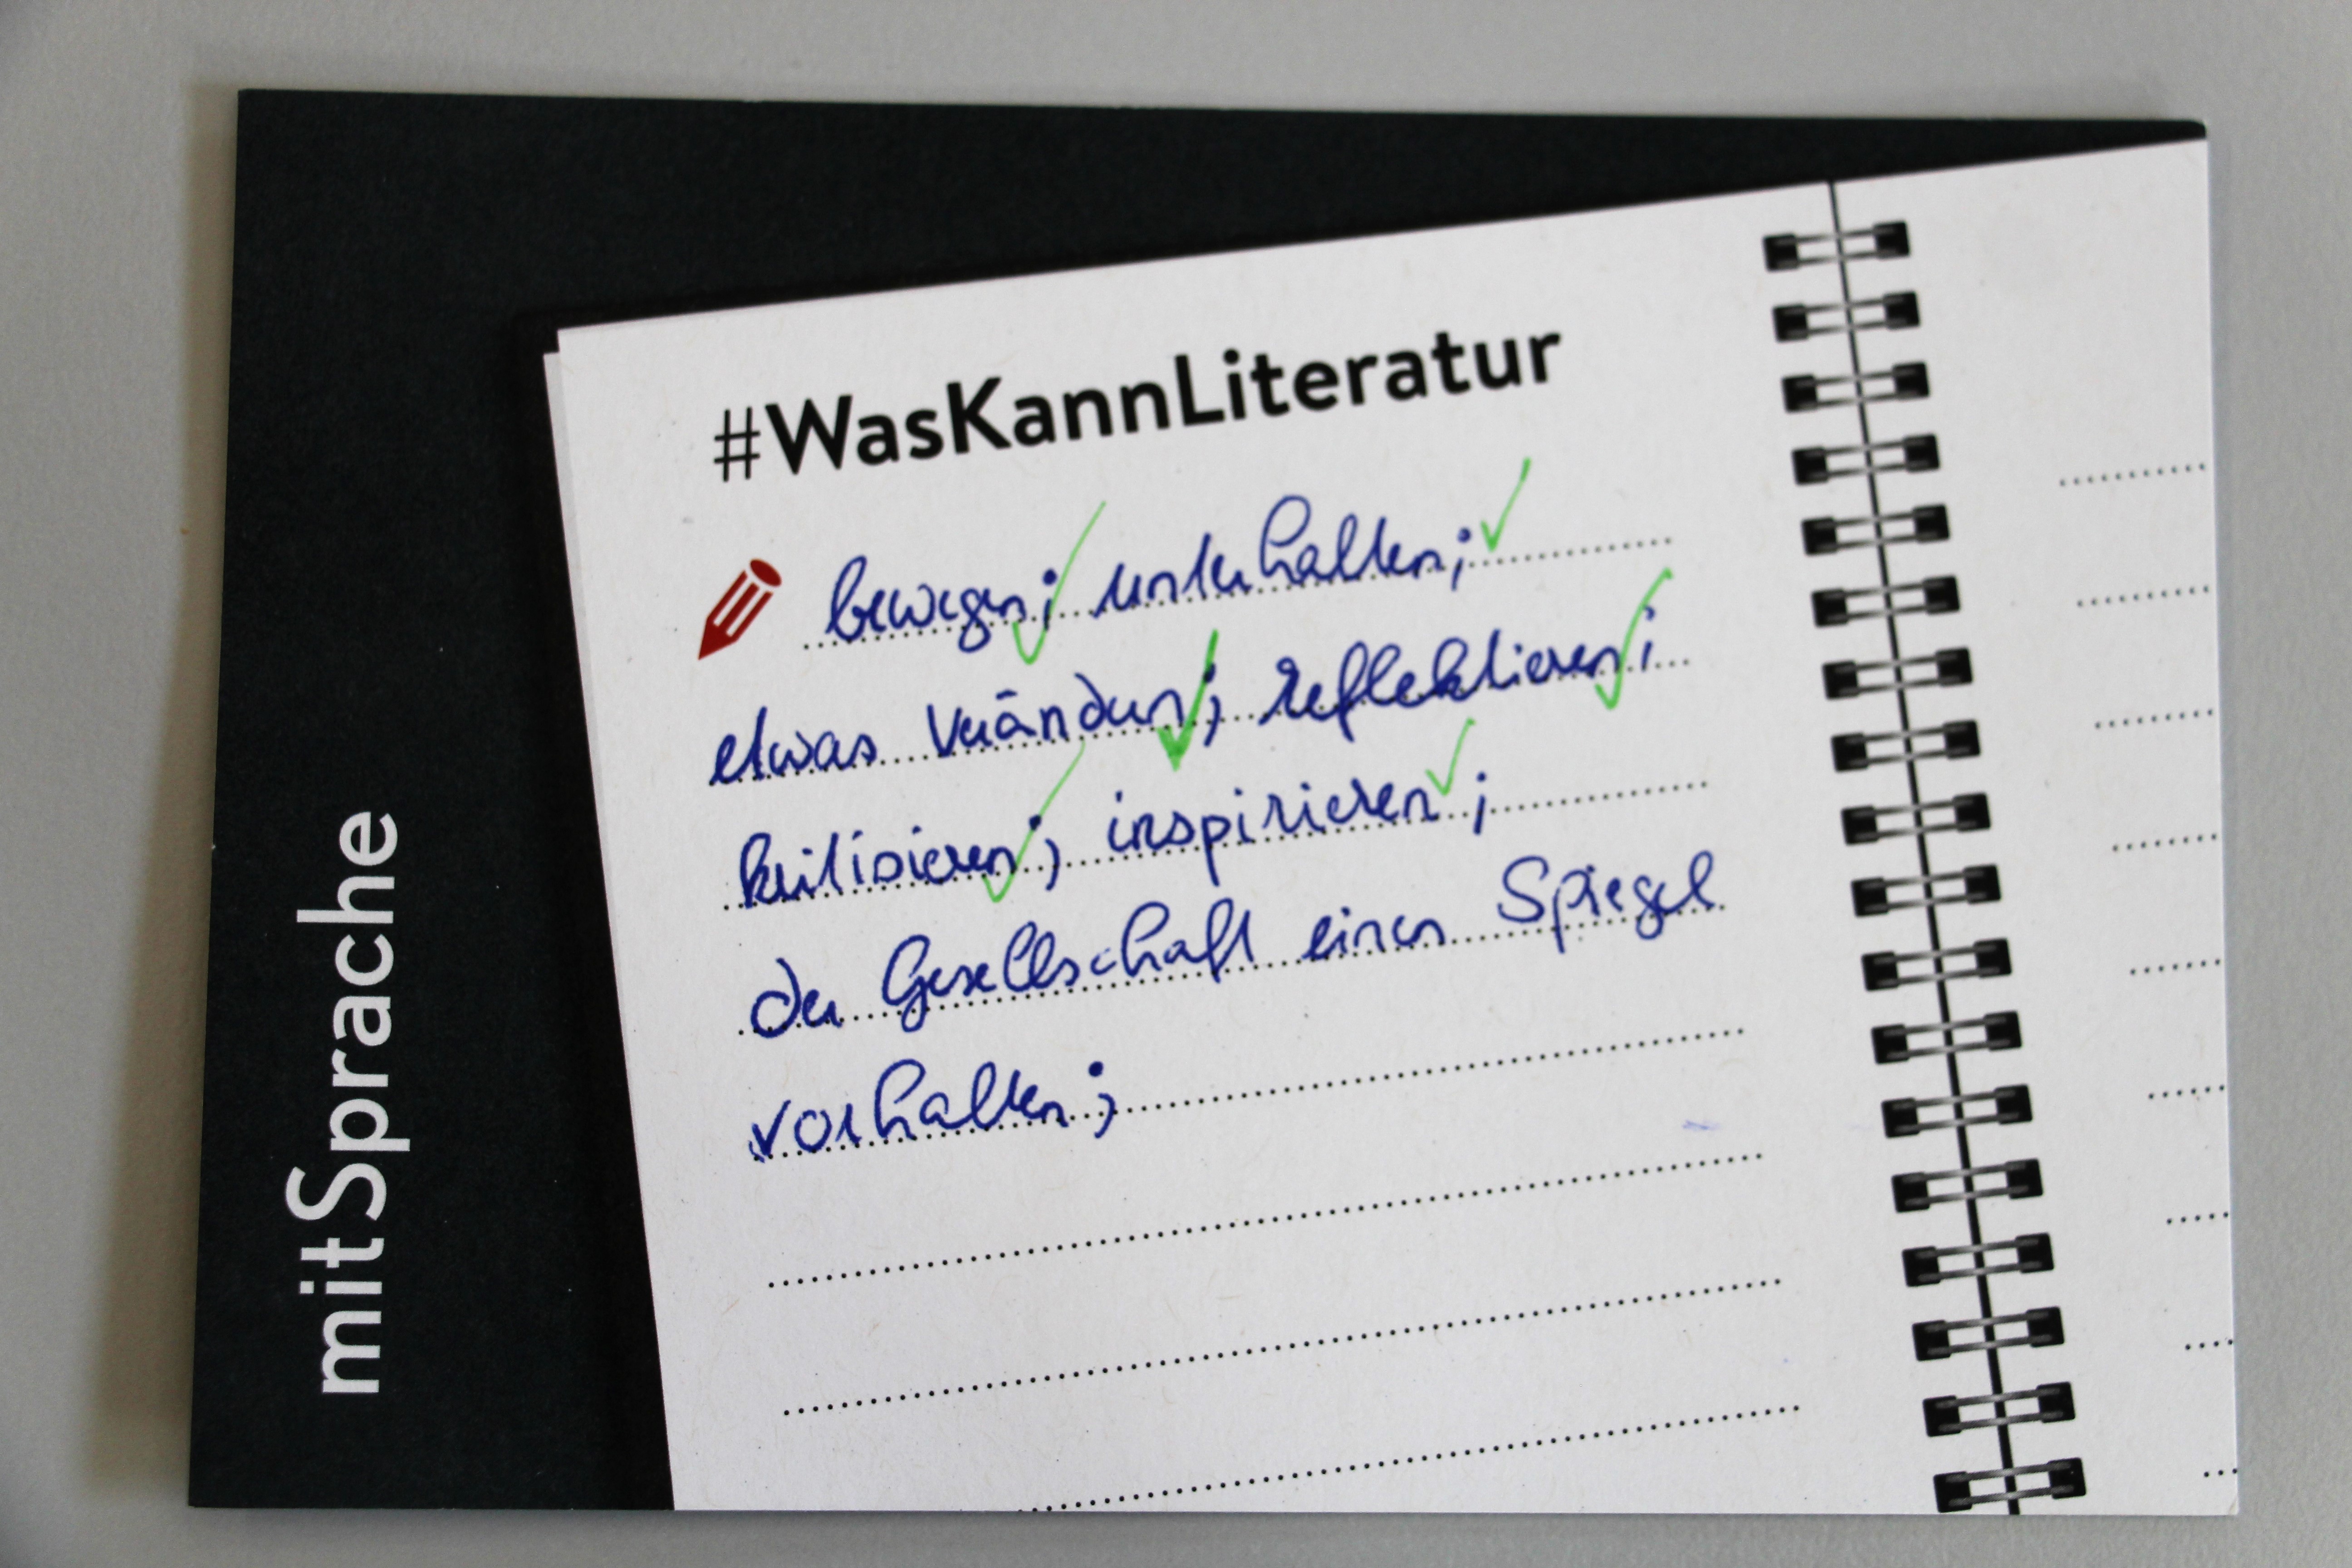 mitSprache
#WasKannLiteratur
bewegen; unterhalten;
etwas verändern; reflektieren;
kritisieren; inspirieren;
der Gesellschaft einen Spiegel
vorhalten;